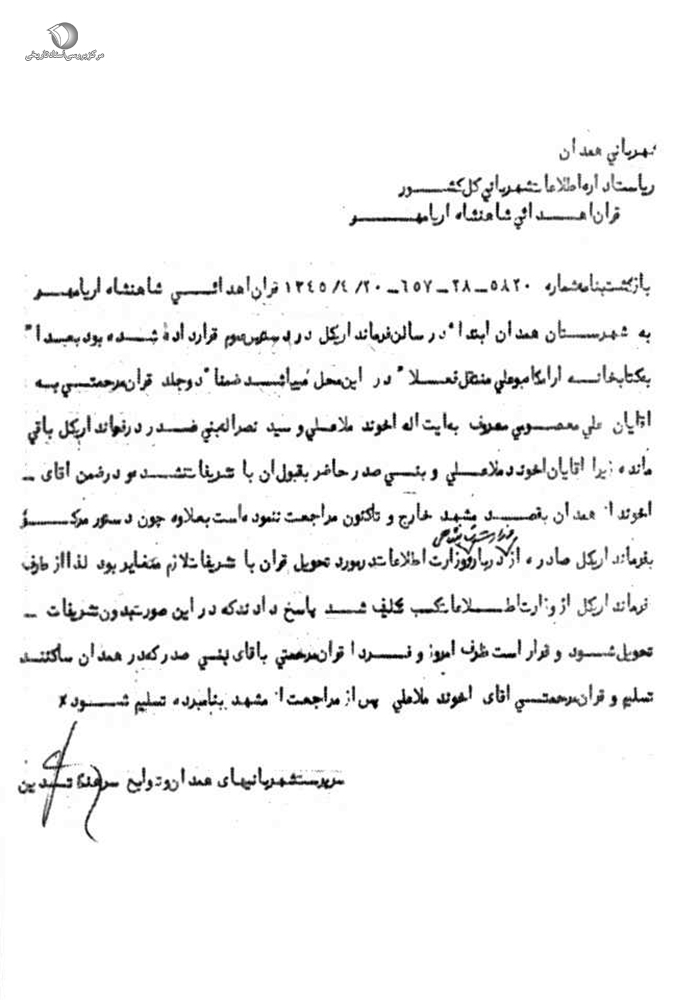 مرکز بررسی اسناد تاریخی
شهربانی همدان
ریاست اداره اطلاعات شهربانی کل کشور
قران اهدائی شاهنشاه اریامهر
بازگشت بنامه شماره ۵۸۲۰ــ۲۸ــ۶۵۷ــ۱۳۴۵/۴/۲۰ قران اهدائی شاهنشاه اریامهر
به شهرستان همدان ابتدا" در سالن فرمانداریکل در دسترس عموم قرار داده شده بود بعدا"
بکتابخانه ارامگاه بوعلی منتقل فعلا" در این محل میباشد ضمنا" دو جلد قران مرحمتی به
اقایان علی معصومی معروف به ایت اله اخوند ملاعلی و سید نصراله بنی صدر در فرمانداریکل باقی
مانده زیرا اقایان اخوند ملاعلی و بنی صدر حاضر بقبول ان با تشریفات نشدند و در ضمن اقای ــ
اخوند از همدان بقصد مشهد خارج و تاکنون مراجعت ننموده است بعلاوه چون دستور مرکز
بفرمانداریکل صادره از دربار و وزارت اطلاعات در مورد تحویل قران با تشریفات لازم مغایر بود لذا از طرف
فرمانداریکل از وزارت اطلاعات کسب تکلیف شد پاسخ دادند که در این صورت بدون تشریفات ــ
تحویل شود و قرار است ظرف امروز و فردا قران مرحمتی باقای بنی صدر که در همدان ساکنند
تسلیم و قران مرحمتی اقای اخوند ملاعلی پس از مراجعت از مشهد بنامبرده تسلیم شود×
سرپرست شهربانیهای همدان و توابع سرهنگ